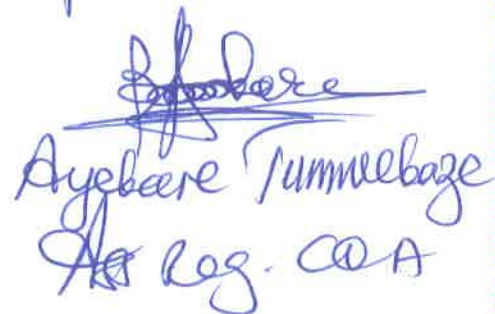 Ayebare Tumwebaze
Ag Reg. COA